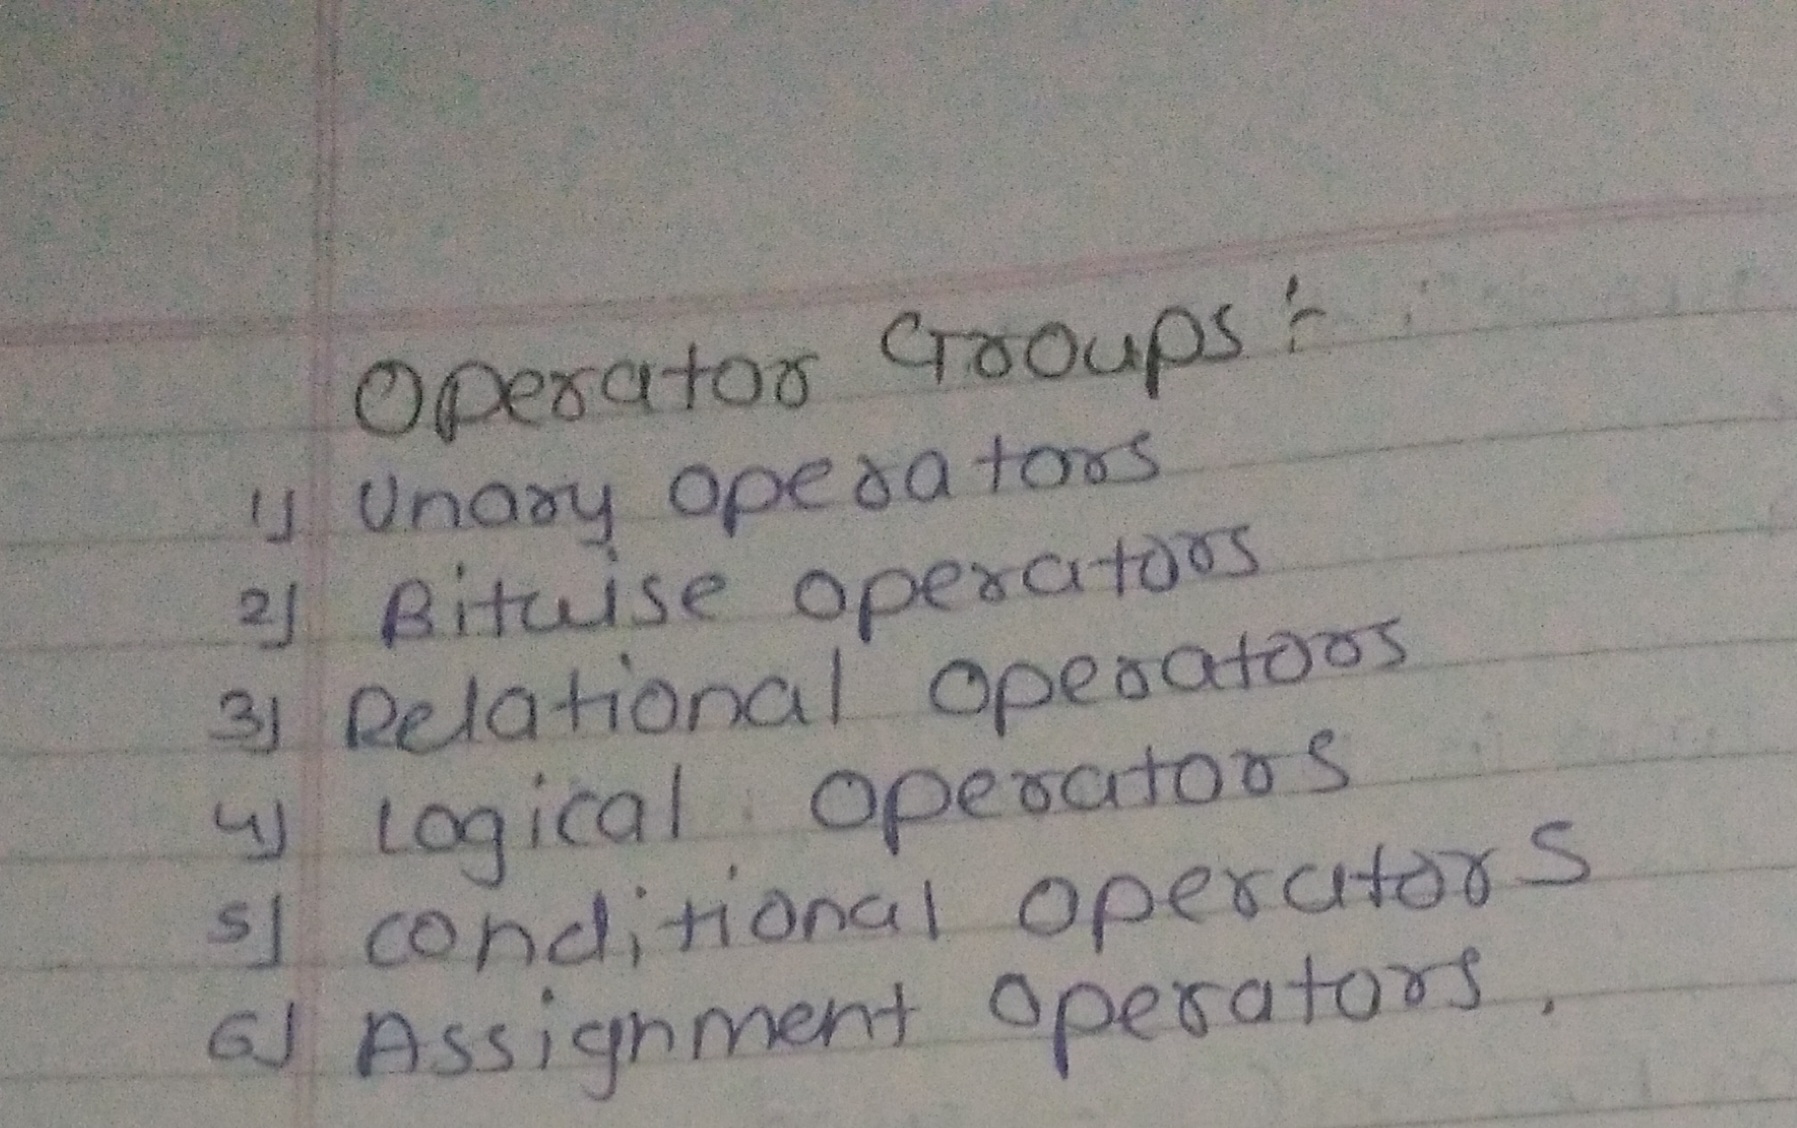 Operator Groups :-
1) Unary operators
2) Bitwise operators
3) Relational operators
4) Logical operators
5) conditional operators
6) Assignment operators.